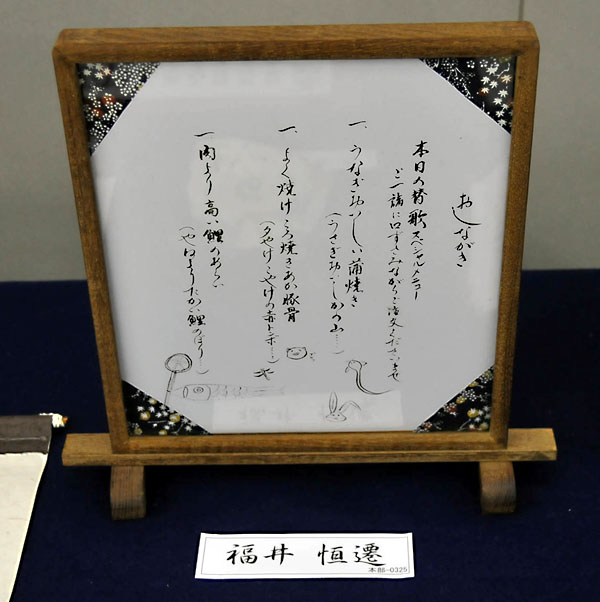 おしながき
本日の替歌スペシャルメニュー
ご一緒に口ずさみながらご注文くださいませ
一、うなぎおいしい蒲焼き
(うさぎおいしかの山…)
一、よく焼けころ焼きあか豚骨
(夕やけこやけの赤トンボ…)
一、肉より高い鯉のあらい
(やねよりたかい鯉のぼり)
福井 恒遷
本部-0325